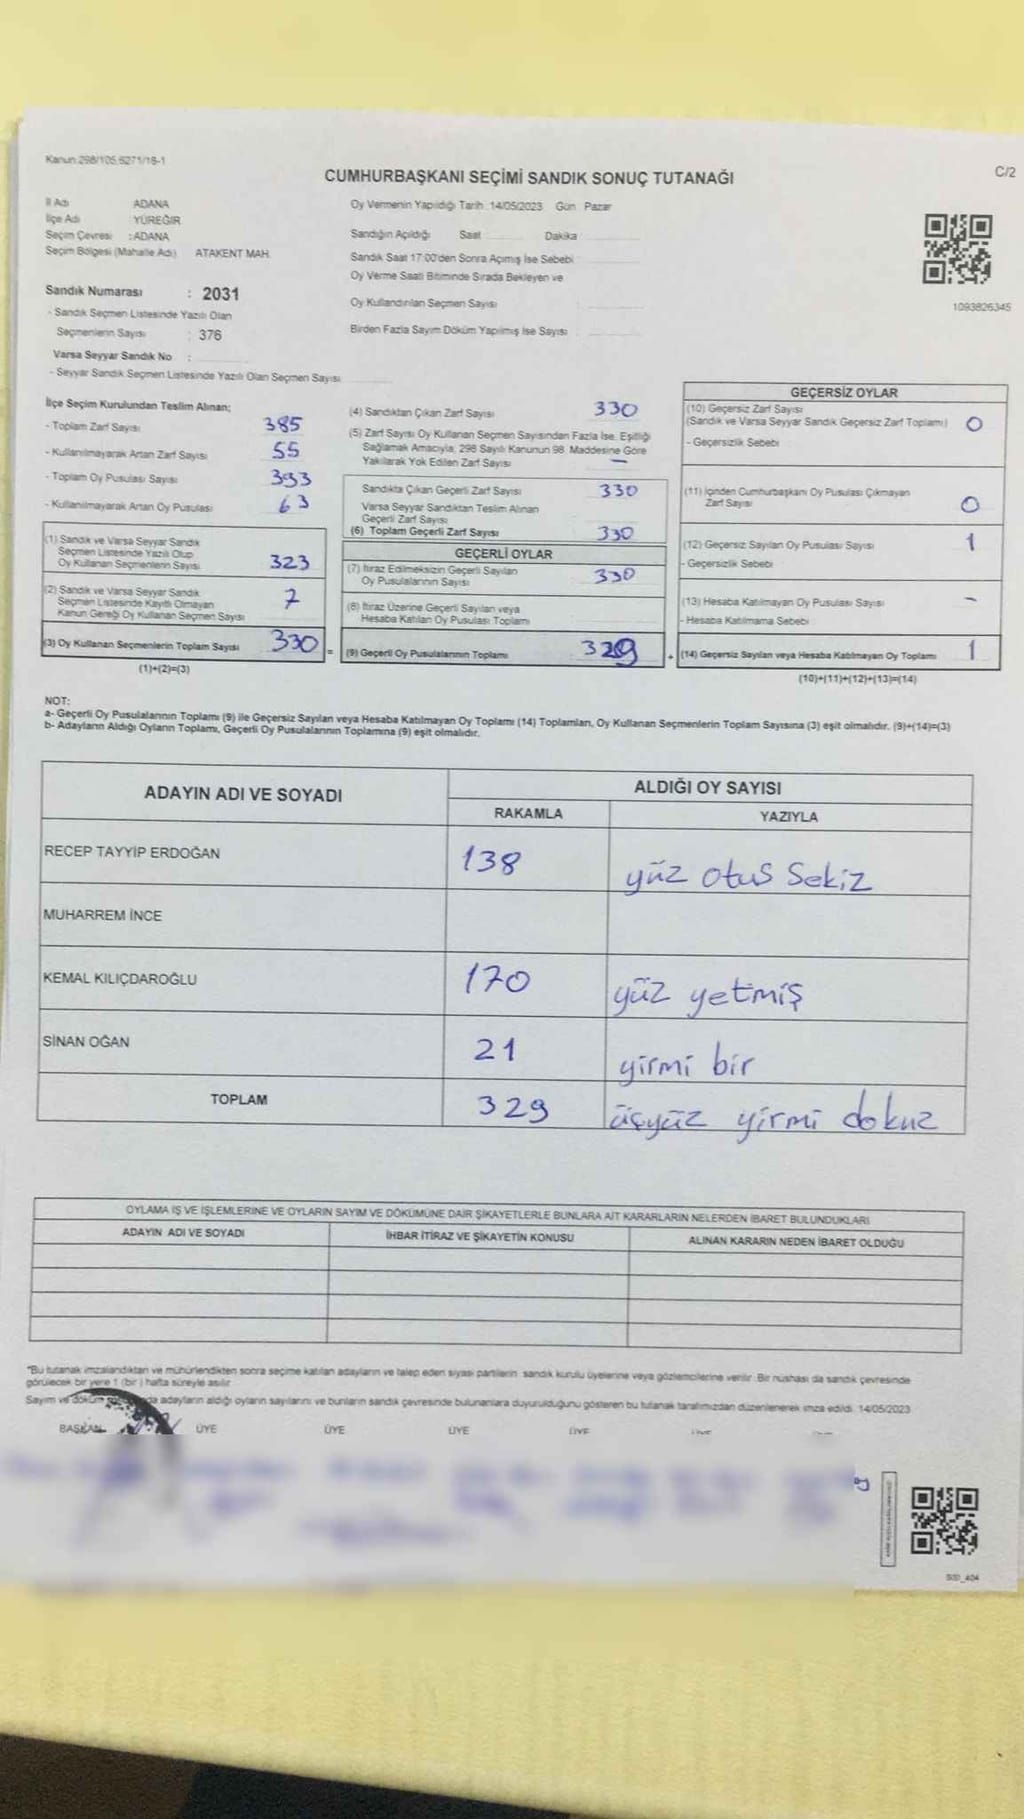 Kanun 298/105,6271/18-1
C/2
CUMHURBAŞKANI SEÇİMİ SANDIK SONUÇ TUTANAĞI
İl Adı ADANA
İlçe Adı YÜREĞİR
Seçim Çevresi : ADANA
Seçim Bölgesi (Mahalle Adı) ATAKENT MAH.
Sandık Numarası : 2031
- Sandık Seçmen Listesinde Yazılı Olan
Seçmenlerin Sayısı : 376
Varsa Seyyar Sandık No :
- Seyyar Sandık Seçmen Listesinde Yazılı Olan Seçmen Sayısı
Oy Vermenin Yapıldığı Tarih :14/05/2023 Gün Pazar
Sandığın Açıldığı Saat Dakika
Sandık Saat 17:00'den Sonra Açımış İse Sebebi
Oy Verme Saati Bitiminde Sırada Bekleyen ve
Oy Kullandırılan Seçmen Sayısı :
Birden Fazla Sayım Döküm Yapılmış İse Sayısı
1093826345
İlçe Seçim Kurulundan Teslim Alınan;
- Toplam Zarf Sayısı 385
- Kullanılmayarak Artan Zarf Sayısı 55
- Toplam Oy Pusulası Sayısı 393
- Kullanılmayarak Artan Oy Pusulası 63
(1) Sandık ve Varsa Seyyar Sandık
Seçmen Listesinde Yazılı Olup
Oy Kullanan Seçmenlerin Sayısı 323
(2) Sandık ve Varsa Seyyar Sandık
Seçmen Listesinde Kayıtlı Olmayan
Kanun Gereği Oy Kullanan Seçmen Sayısı 7
(3) Oy Kullanan Seçmenlerin Toplam Sayısı 330 =
(1)+(2)=(3)
(4) Sandıktan Çıkan Zarf Sayısı 330
(5) Zarf Sayısı Oy Kullanan Seçmen Sayısından Fazla İse, Eşitliği
Sağlamak Amacıyla, 298 Sayılı Kanunun 98. Maddesine Göre
Yakılarak Yok Edilen Zarf Sayısı —
Sandıkta Çıkan Geçerli Zarf Sayısı 330
Varsa Seyyar Sandıktan Teslim Alınan
Geçerli Zarf Sayısı
(6) Toplam Geçerli Zarf Sayısı 330
GEÇERLİ OYLAR
(7) İtiraz Edilmeksizin Geçerli Sayılan
Oy Pusulalarının Sayısı 330
(8) İtiraz Üzerine Geçerli Sayılan veya
Hesaba Katılan Oy Pusulası Toplamı
(9) Geçerli Oy Pusulalarının Toplamı 329 +
GEÇERSİZ OYLAR
(10) Geçersiz Zarf Sayısı
(Sandık ve Varsa Seyyar Sandık Geçersiz Zarf Toplamı) 0
- Geçersizlik Sebebi
(11) İçinden Cumhurbaşkanı Oy Pusulası Çıkmayan
Zarf Sayısı 0
(12) Geçersiz Sayılan Oy Pusulası Sayısı 1
- Geçersizlik Sebebi
(13) Hesaba Katılmayan Oy Pusulası Sayısı -
- Hesaba Katılmama Sebebi
(14) Geçersiz Sayılan veya Hesaba Katılmayan Oy Toplamı 1
(10)+(11)+(12)+(13)=(14)
NOT:
a- Geçerli Oy Pusulalarının Toplamı (9) ile Geçersiz Sayılan veya Hesaba Katılmayan Oy Toplamı (14) Toplamları, Oy Kullanan Seçmenlerin Toplam Sayısına (3) eşit olmalıdır. (9)+(14)=(3)
b- Adayların Aldığı Oyların Toplamı, Geçerli Oy Pusulalarının Toplamına (9) eşit olmalıdır.
ADAYIN ADI VE SOYADI ALDIĞI OY SAYISI
RAKAMLA YAZIYLA
RECEP TAYYİP ERDOĞAN 138 yüz otus sekiz
MUHARREM İNCE
KEMAL KILIÇDAROĞLU 170 yüz yetmiş
SİNAN OĞAN 21 yirmi bir
TOPLAM 329 üçyüz yirmi dokuz
OYLAMA İŞ VE İŞLEMLERİNE VE OYLARIN SAYIM VE DÖKÜMÜNE DAİR ŞİKAYETLERLE BUNLARA AİT KARARLARIN NELERDEN İBARET BULUNDUKLARI
ADAYIN ADI VE SOYADI İHBAR İTİRAZ VE ŞİKAYETİN KONUSU ALINAN KARARIN NEDEN İBARET OLDUĞU
*Bu tutanak imzalandıktan ve mühürlendikten sonra seçime katılan adayların ve talep eden siyasi partilerin sandık kurulu üyelerine veya gözlemcilerine verilir. Bir nüshası da sandık çevresinde
görülecek bir yere 1 (bir) hafta süreyle asılır.
Sayım ve döküm adayların aldığı oyların sayılarını ve bunların sandık çevresinde bulunanlara duyurulduğunu gösteren bu tutanak tarafımızdan düzenlenerek imza edildi. 14/05/2023
BAŞKAN ÜYE ÜYE ÜYE ÜYE